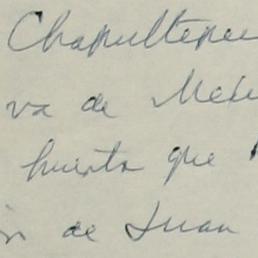 Chapultepec
va de Mexi
huerta que
de Juan